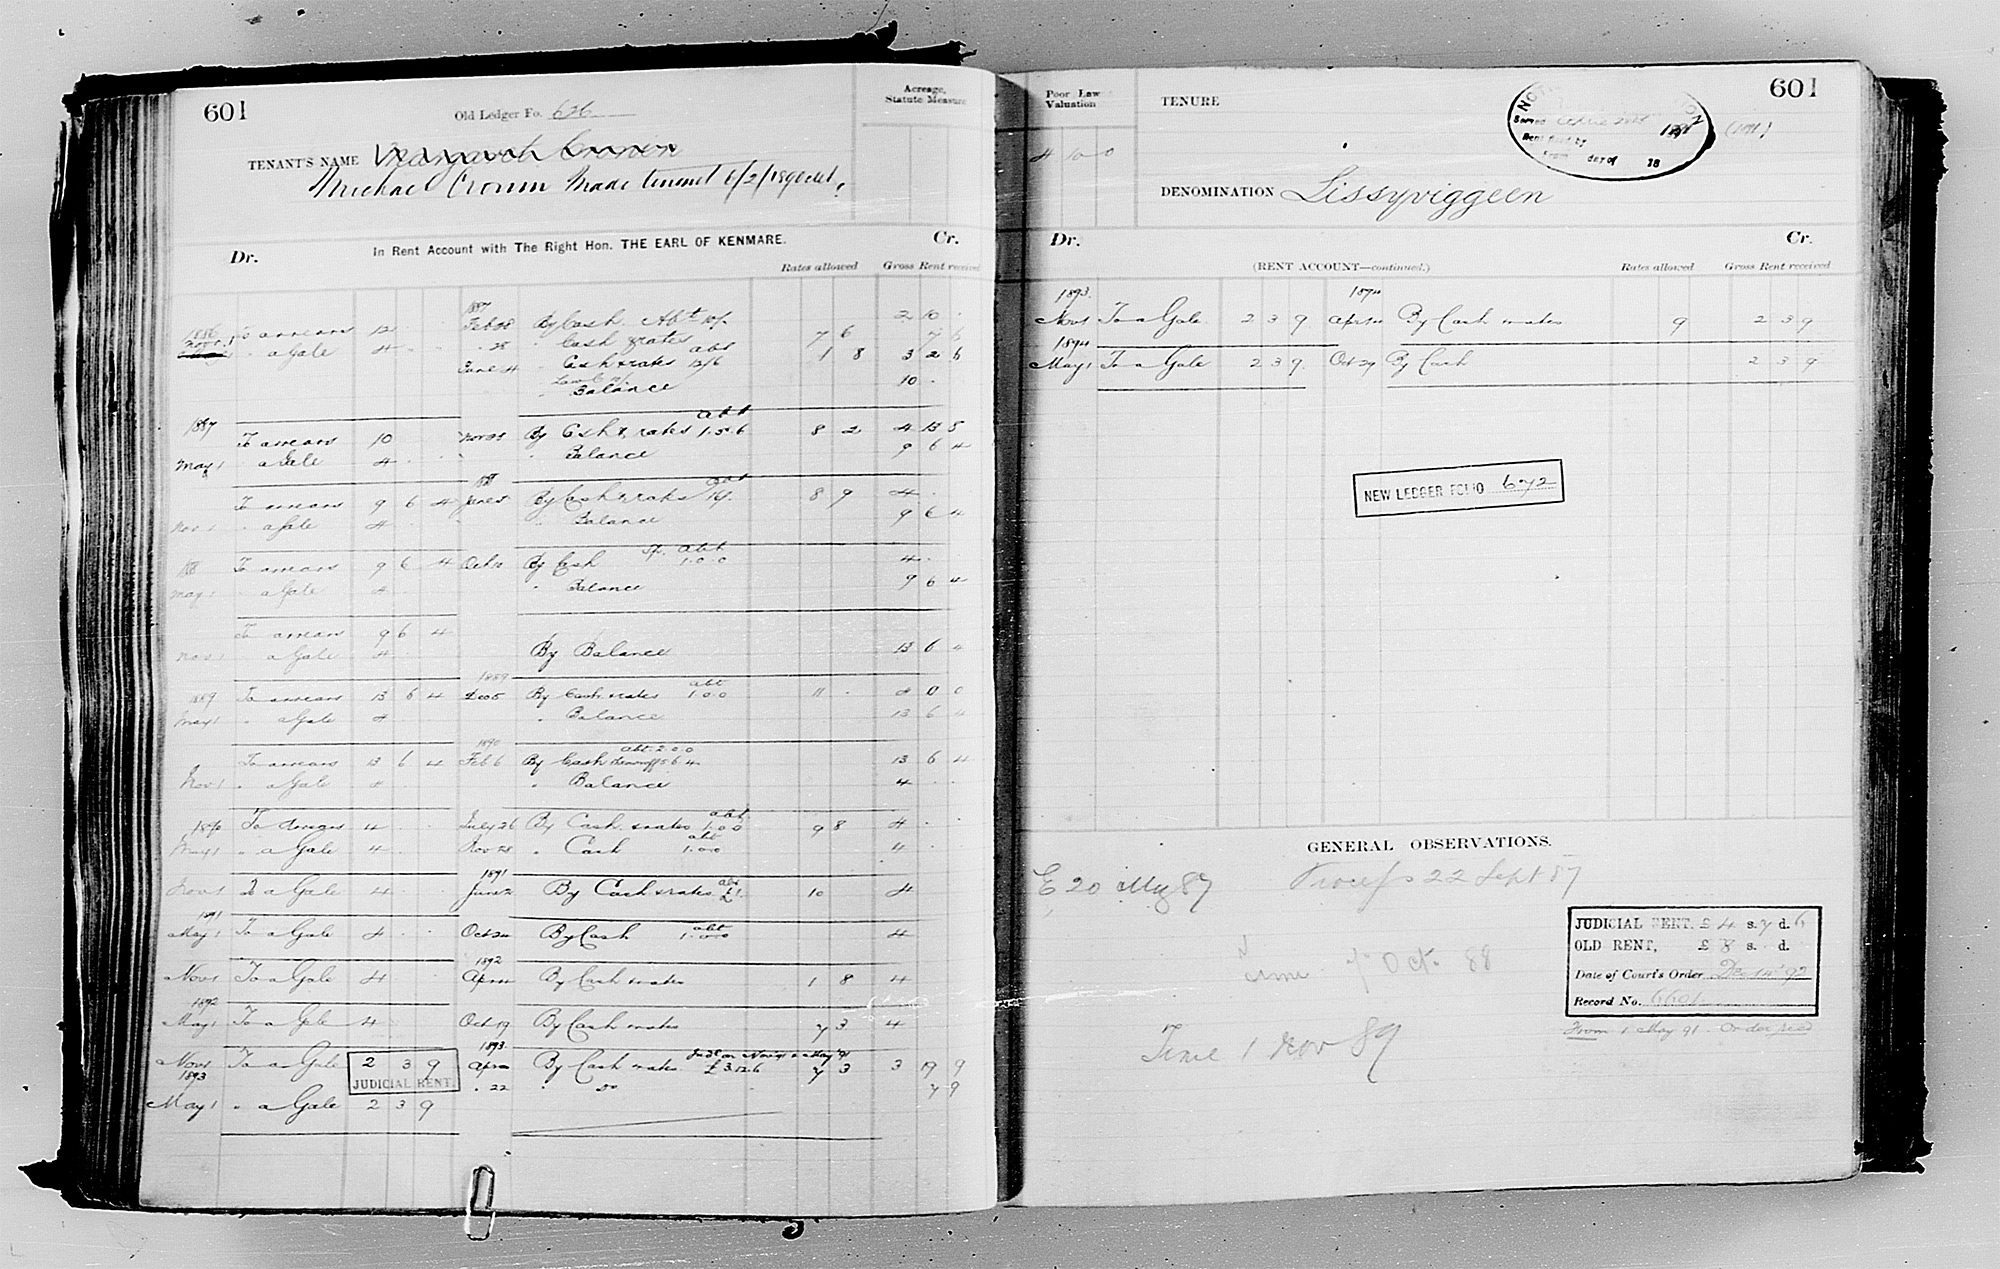 601
Old Ledger Fo. 626
Acreage, Statute Measure
TENANT'S NAME Margaret Cronin
Michael Cronin Made tenant 6/2/1890
In Rent Account with The Right Hon. THE EARL OF KENMARE.
Dr. Cr.
Rates allowed Gross Rent received
1887
1886 To arrears 12 Feby By Cash Abt 10/- 2 10
Nov 1 " a Gale 4 " 25 " Cash & rates 7 6 7 6
June 4 " Cash & rates abt 12/6 1 8 3 2 6
" Balance 10
1887 To arrears 10 Nov By Cash & rates abt 1.5.6 8 2 4 13 8
May 1 " a Gale 4 " Balance 9 6 4
188
To arrears 9 6 4 June By Cash & rates abt 8 9 4
Nov 1 " a Gale 4 " Balance 9 6 4
188 To arrears 9 6 4 Oct By Cash abt 1.0.0 4
May 1 " a Gale 4 " Balance 9 6 4
To arrears 9 6 4
Nov 1 " a Gale 4 By Balance 13 6 4
1889
1889 To arrears 13 6 4 Dec 5 By Cash & rates abt 1.0.0 11 4 0 0
May 1 " a Gale 4 " Balance 13 6 4
1890
To arrears 13 6 4 Feb 6 By Cash abt 2.0.0 5 6 4 13 6 4
Nov 1 " a Gale 4 " Balance 4
1890 To arrears 4 July 26 By Cash & rates abt 1.0.0 9 8 4
May 1 " a Gale 4 Nov 28 " Cash abt 1.0.0 4
1891
Nov 1 To a Gale 4 June 2 By Cash & rates abt £1 10 4
1891
May 1 To a Gale 4 Oct 20 By Cash abt 1.0.0 4
1892
Nov 1 To a Gale 4 Apr By Cash & rates 1 8 4
1892
May 1 To a Gale 4 Oct 19 By Cash & rates 7 3 4
1893
Nov 1 To a Gale 2 3 9 Apr By Cash & rates £3.12.6 7 3 3 19 9
JUDICIAL RENT.
1893 " 22 " Do 7 9
May 1 " a Gale 2 3 9
Poor Law Valuation
TENURE
601
4 10 0
Served
Rent fixed by
from day of 18
(1891)
DENOMINATION Lissyviggeen
Dr. Cr.
(RENT ACCOUNT—continued.) Rates allowed Gross Rent received
1893 1894
Nov 1 To a Gale 2 3 9 Apr By Cash & rates 9 2 3 9
1894
May 1 To a Gale 2 3 9 Oct 29 By Cash 2 3 9
NEW LEDGER FOLIO 672
GENERAL OBSERVATIONS.
E 20 May 87 Process 22 Sept 87
Time 7 Oct. 88
Time 1 Nov 89
JUDICIAL RENT, £ 4 s. 7 d. 6
OLD RENT, £ 8 s. d.
Date of Court's Order Dec 14 '92
Record No. 6601
From 1 May 91. Order fixed